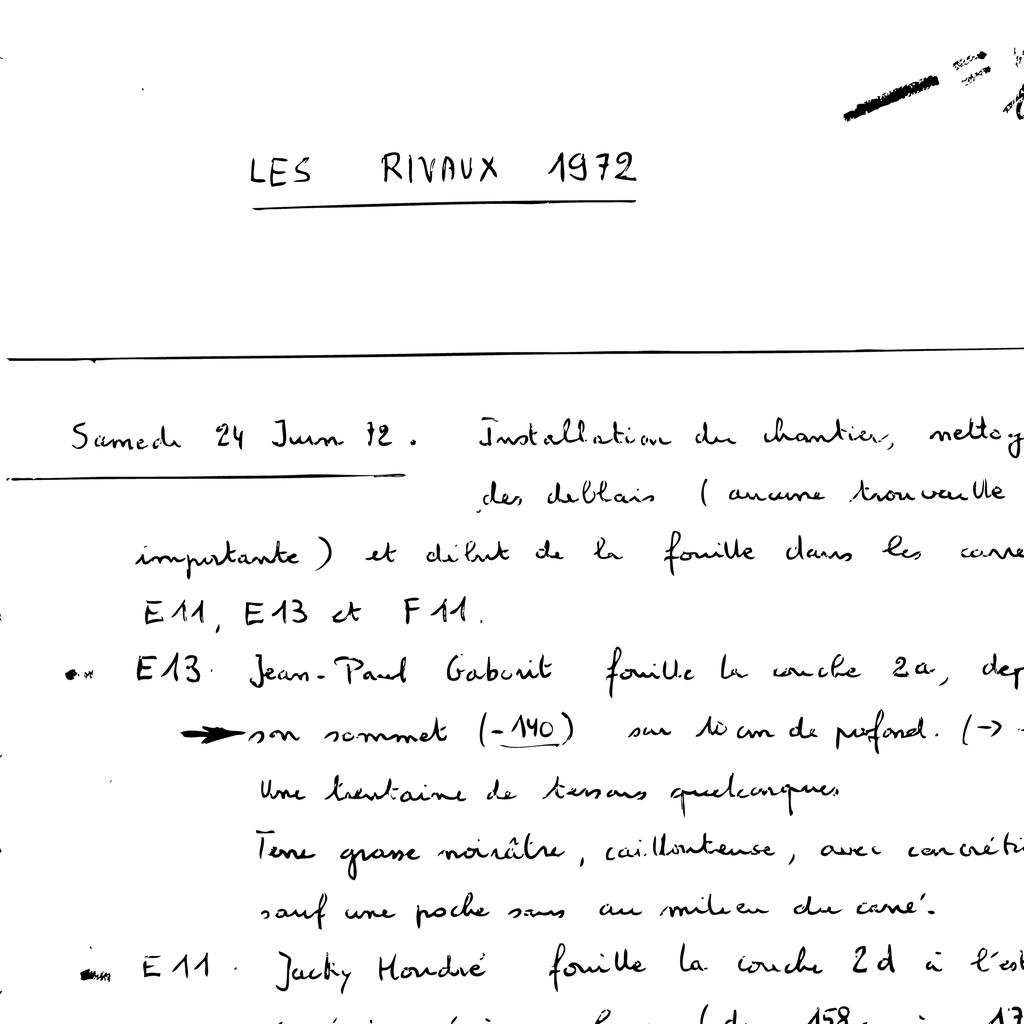 LES RIVAUX 1972
Samedi 24 Juin 72. Installation du chantier, nettoy
des deblais (aucune trouvaille
importante) et début de la fouille dans les carré
E11, E13 et F11.
E13. Jean-Paul Gaborit fouille la couche 2a, dep
son sommet (-140) sur 10 cm de profond. (→ -
Une trentaine de tessons quelconques
Terre grasse noirâtre, caillouteuse, avec concréti
sauf une poche sans au milieu du carré.
E11. Jacky Houdré fouille la couche 2d à l'est
(de 158 à 17